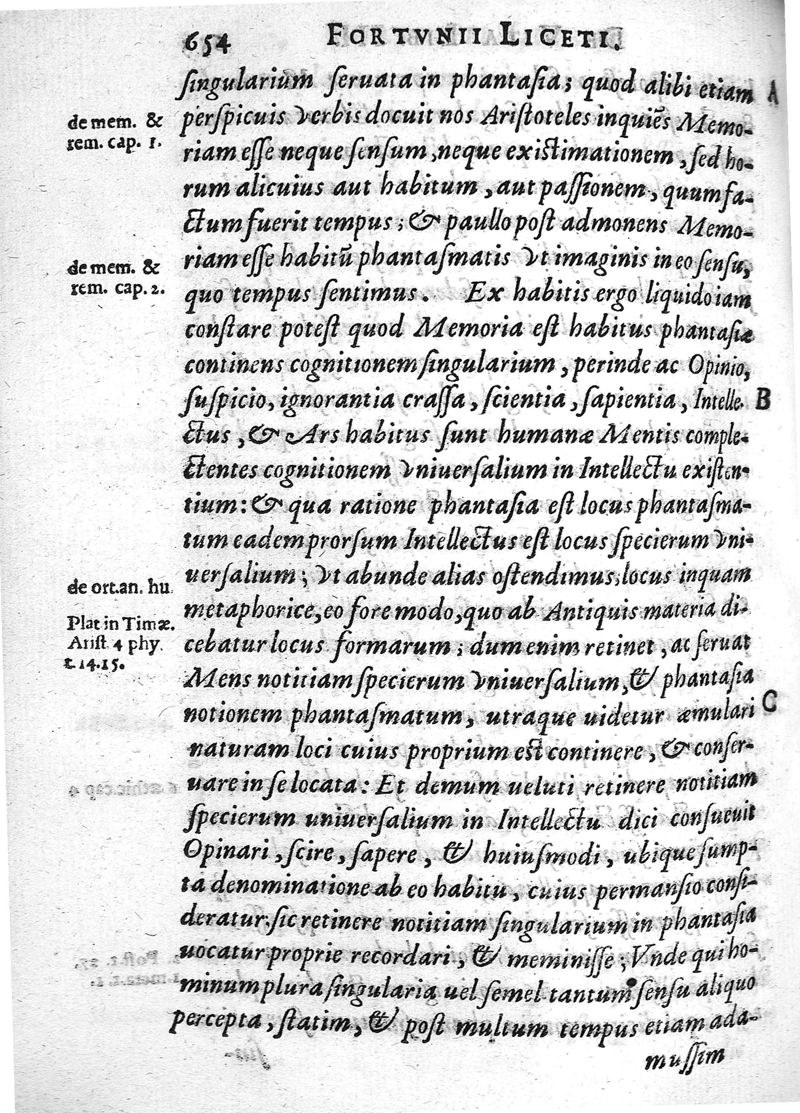 654 FORTVNII LICETI.
singularium seruata in phantasia; quod alibi etiam A
de mem. &
rem. cap. 1.
perspicuis verbis docuit nos Aristoteles inquiẽs Memo-
riam esse neque sensum, neque existimationem, sed ho-
rum alicuius aut habitum, aut passionem, quum fa-
ctum fuerit tempus; & paullo post admonens Memo-
de mem. &
rem. cap. 2.
riam esse habitũ phantasmatis vt imaginis in eo sensu,
quo tempus sentimus. Ex habitis ergo liquido iam
constare potest quod Memoria est habitus phantasiæ
continens cognitionem singularium, perinde ac Opinio,
suspicio, ignorantia crassa, scientia, sapientia, Intelle- B
ctus, & Ars habitus sunt humanæ Mentis comple-
ctentes cognitionem vniuersalium in Intellectu existen-
tium: & qua ratione phantasia est locus phantasma-
tum eadem prorsum Intellectus est locus specierum vni-
de ort. an. hu.
uersalium; vt abunde alias ostendimus; locus inquam
Plat in Timæ.
Arist 4 phy.
t. 14. 15.
metaphorice, eo fore modo, quo ab Antiquis materia di-
cebatur locus formarum; dum enim retinet, ac seruat
Mens notitiam specierum vniuersalium, & phantasia
notionem phantasmatum, utraque uidetur æmulari C
naturam loci cuius proprium est continere, & conser-
uare in se locata: Et demum ueluti retinere notitiam
specierum uniuersalium in Intellectu dici consueuit
Opinari, scire, sapere, & huiusmodi, ubique sump-
ta denominatione ab eo habitu, cuius permansio consi-
deratur: sic retinere notitiam singularium in phantasia
uocatur proprie recordari, & meminisse; Vnde qui ho-
minum plura singularia uel semel tantum sensu aliquo
percepta, statim, & post multum tempus etiam ada-
mussim